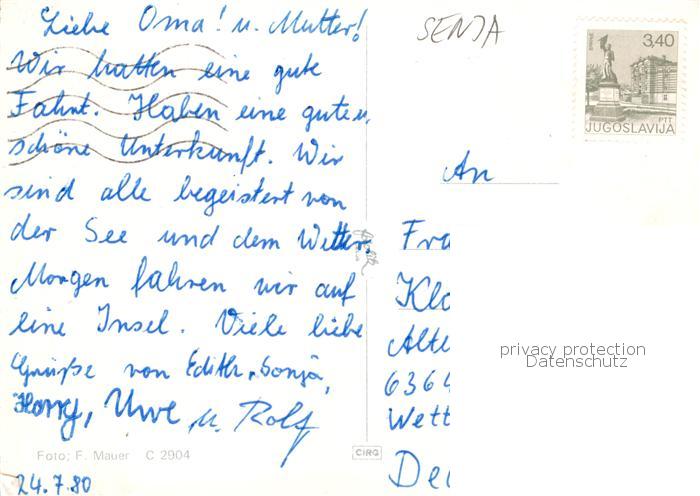 Liebe Oma! u. Mutter!
Wir hatten eine gute
Fahrt. Haben eine gute u.
schöne Unterkunft. Wir
sind alle begeistert von
der See und dem Wetter.
Morgen fahren wir auf
eine Insel. Viele liebe
Grüße von Edith, Sonja,
Harry, Uwe u. Rolf
Foto: F. Mauer C 2904
24.7.80
CIRG
SENJA
3,40
PTT
JUGOSLAVIJA
An
Fra
Klo
Alte
6364
Wett
De
privacy protection
Datenschutz